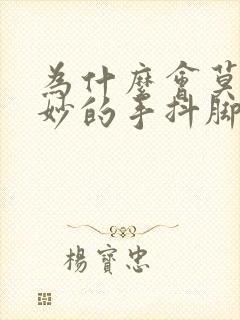 為什麼會莫
妙的手抖腳
楊寶忠